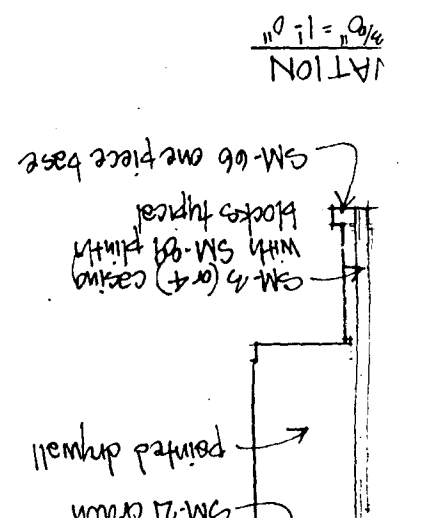 crown
painted drywall
SM-3 (or 4) casing
with SM-89 plinth
blocks typical
SM-66 one piece base
VATION
= 1'-0"